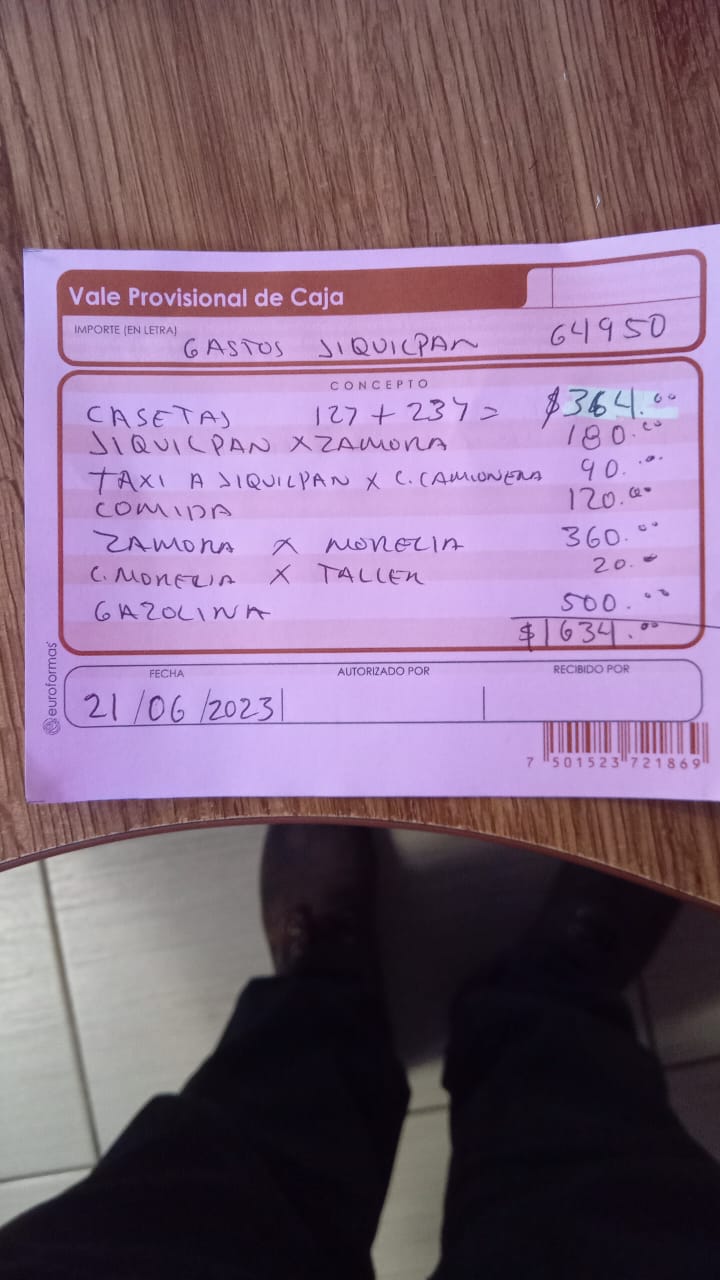 Vale Provisional de Caja
IMPORTE (EN LETRA) GASTOS JIQUILPAN 64950
CONCEPTO
CASETAS 127 + 237 = $364.00
JIQUILPAN X ZAMORA 180.00
TAXI A JIQUILPAN X C. CAMIONERA 90.00
COMIDA 120.00
ZAMORA X MORELIA 360.00
C. MORELIA X TALLER 20.-
GAZOLINA 500.00
$1634.00
FECHA AUTORIZADO POR RECIBIDO POR
21/06/2023
euroformas
7 501523 721869